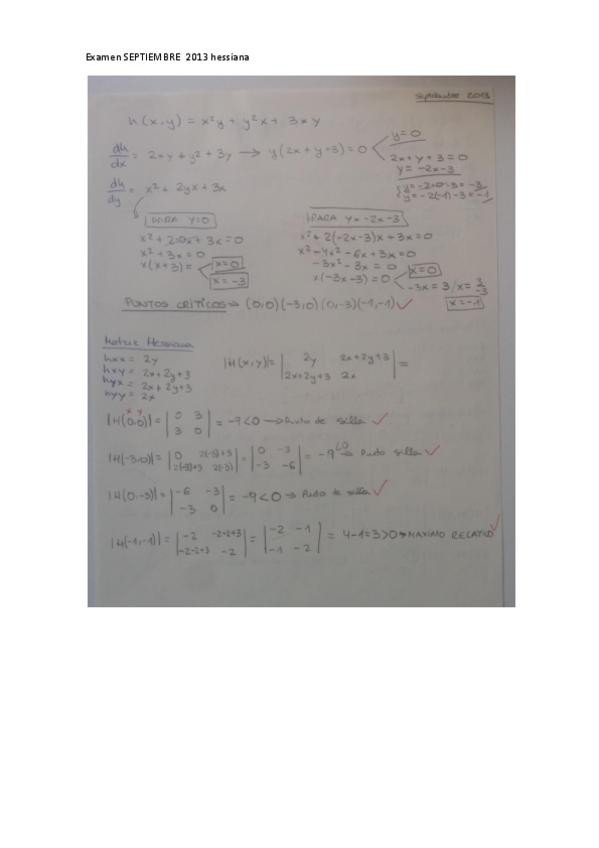 Examen SEPTIEMBRE 2013 hessiana
Septiembre 2013
h(x,y) = x²y + y²x + 3xy
dh/dx = 2xy + y² + 3y → y(2x+y+3) = 0
y=0
2x+y+3=0
y=-2x-3
y=-2·0-3=-3
y=-2(-1)-3=-1
dh/dy = x² + 2yx + 3x
PARA Y=0
x² + 2·0x + 3x = 0
x² + 3x = 0
x(x+3) =
x=0
x=-3
PARA Y=-2x-3
x² + 2(-2x-3)x + 3x = 0
x² - 4x² - 6x + 3x = 0
-3x² - 3x = 0
x(-3x-3) = 0
x=0
-3x = 3 / x = 3/-3
x=-1
PUNTOS CRÍTICOS → (0,0)(-3,0)(0,-3)(-1,-1) ✓
Matriz Hessiana
hxx = 2y
hxy = 2x+2y+3
hyx = 2x+2y+3
hyy = 2x
|H(x,y)| = | 2y 2x+2y+3 | =
| 2x+2y+3 2x |
x y
|H(0,0)| = | 0 3 | = -9<0 → Punto de silla ✓
| 3 0 |
|H(-3,0)| = | 0 2(-3)+3 | = | 0 -3 | = -9<0 → Punto silla ✓
| 2(-3)+3 2(-3) | | -3 -6 |
|H(0,-3)| = | -6 -3 | = -9<0 → Punto de silla ✓
| -3 0 |
|H(-1,-1)| = | -2 -2-2+3 | = | -2 -1 | = 4-1=3>0 → MAXIMO RELATIVO ✓
| -2-2+3 -2 | | -1 -2 |